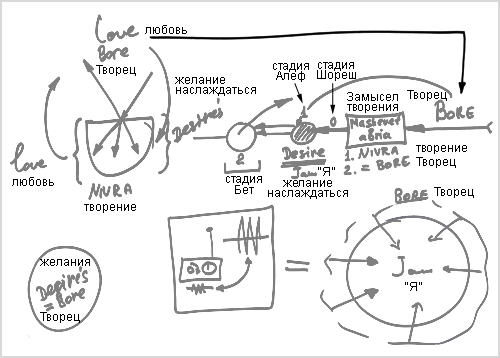 Love любовь
Bore
Творец
желание
наслаждаться
Desire's
Love
любовь
NIVRA
творение
стадия
Алеф
стадия
Шореш
1
0
Замысел
творения
Творец
BORE
2
стадия
Бет
Desire
"Я"
желание
наслаждаться
1. NIVRA
2. = BORE
творение
Творец
BORE Творец
желания
Desire's
= Bore
Творец
=
"Я"